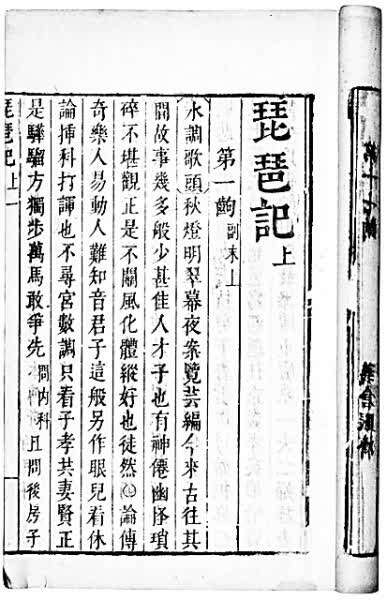 琵琶記上
第一齣副末上
水調歌頭秋燈明翠幕夜案覽芸編今來古往其
間故事幾多般少甚佳人才子也有神僊幽怪瑣
碎不堪觀正是不關風化體縱好也徒然論傳
奇樂人易動人難知音君子這般另作眼兒看休
論揷科打諢也不尋宮數調只看子孝共妻賢正
是驊騮方獨步萬馬敢爭先問內科且問後房子
琵琶記上一